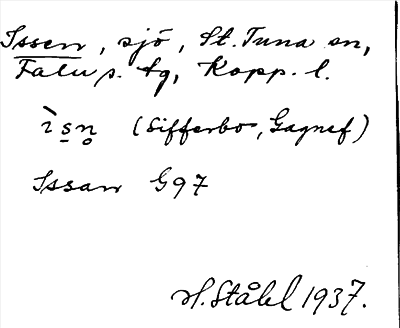 Issen, sjö, St. Tuna sn,
Falu s. tg, Kopp. l.
ìsn̥ (Sifferbo, Gagnef)
Issan G97
H. Ståhl 1937.